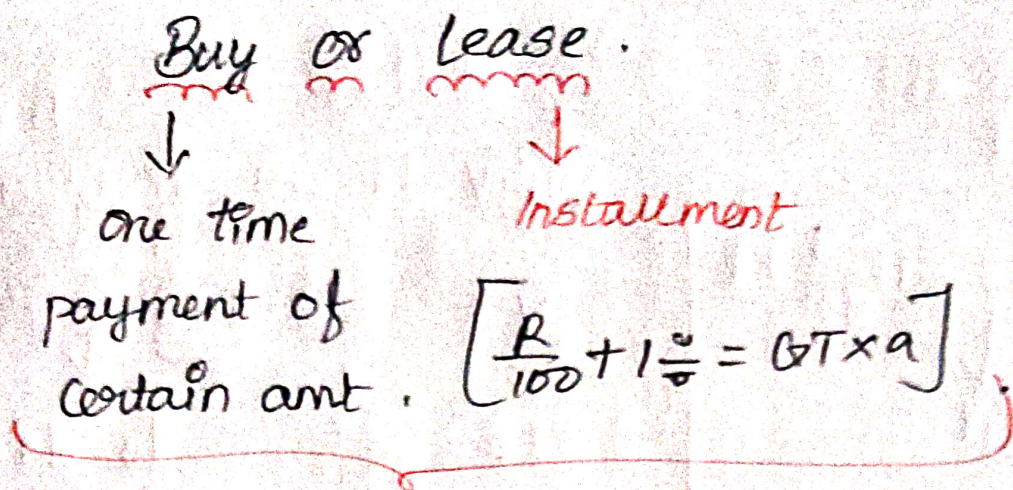 Buy or lease.
one time
payment of
certain amt.
Installment.
[R/100 + 1 ÷ = GT × a].